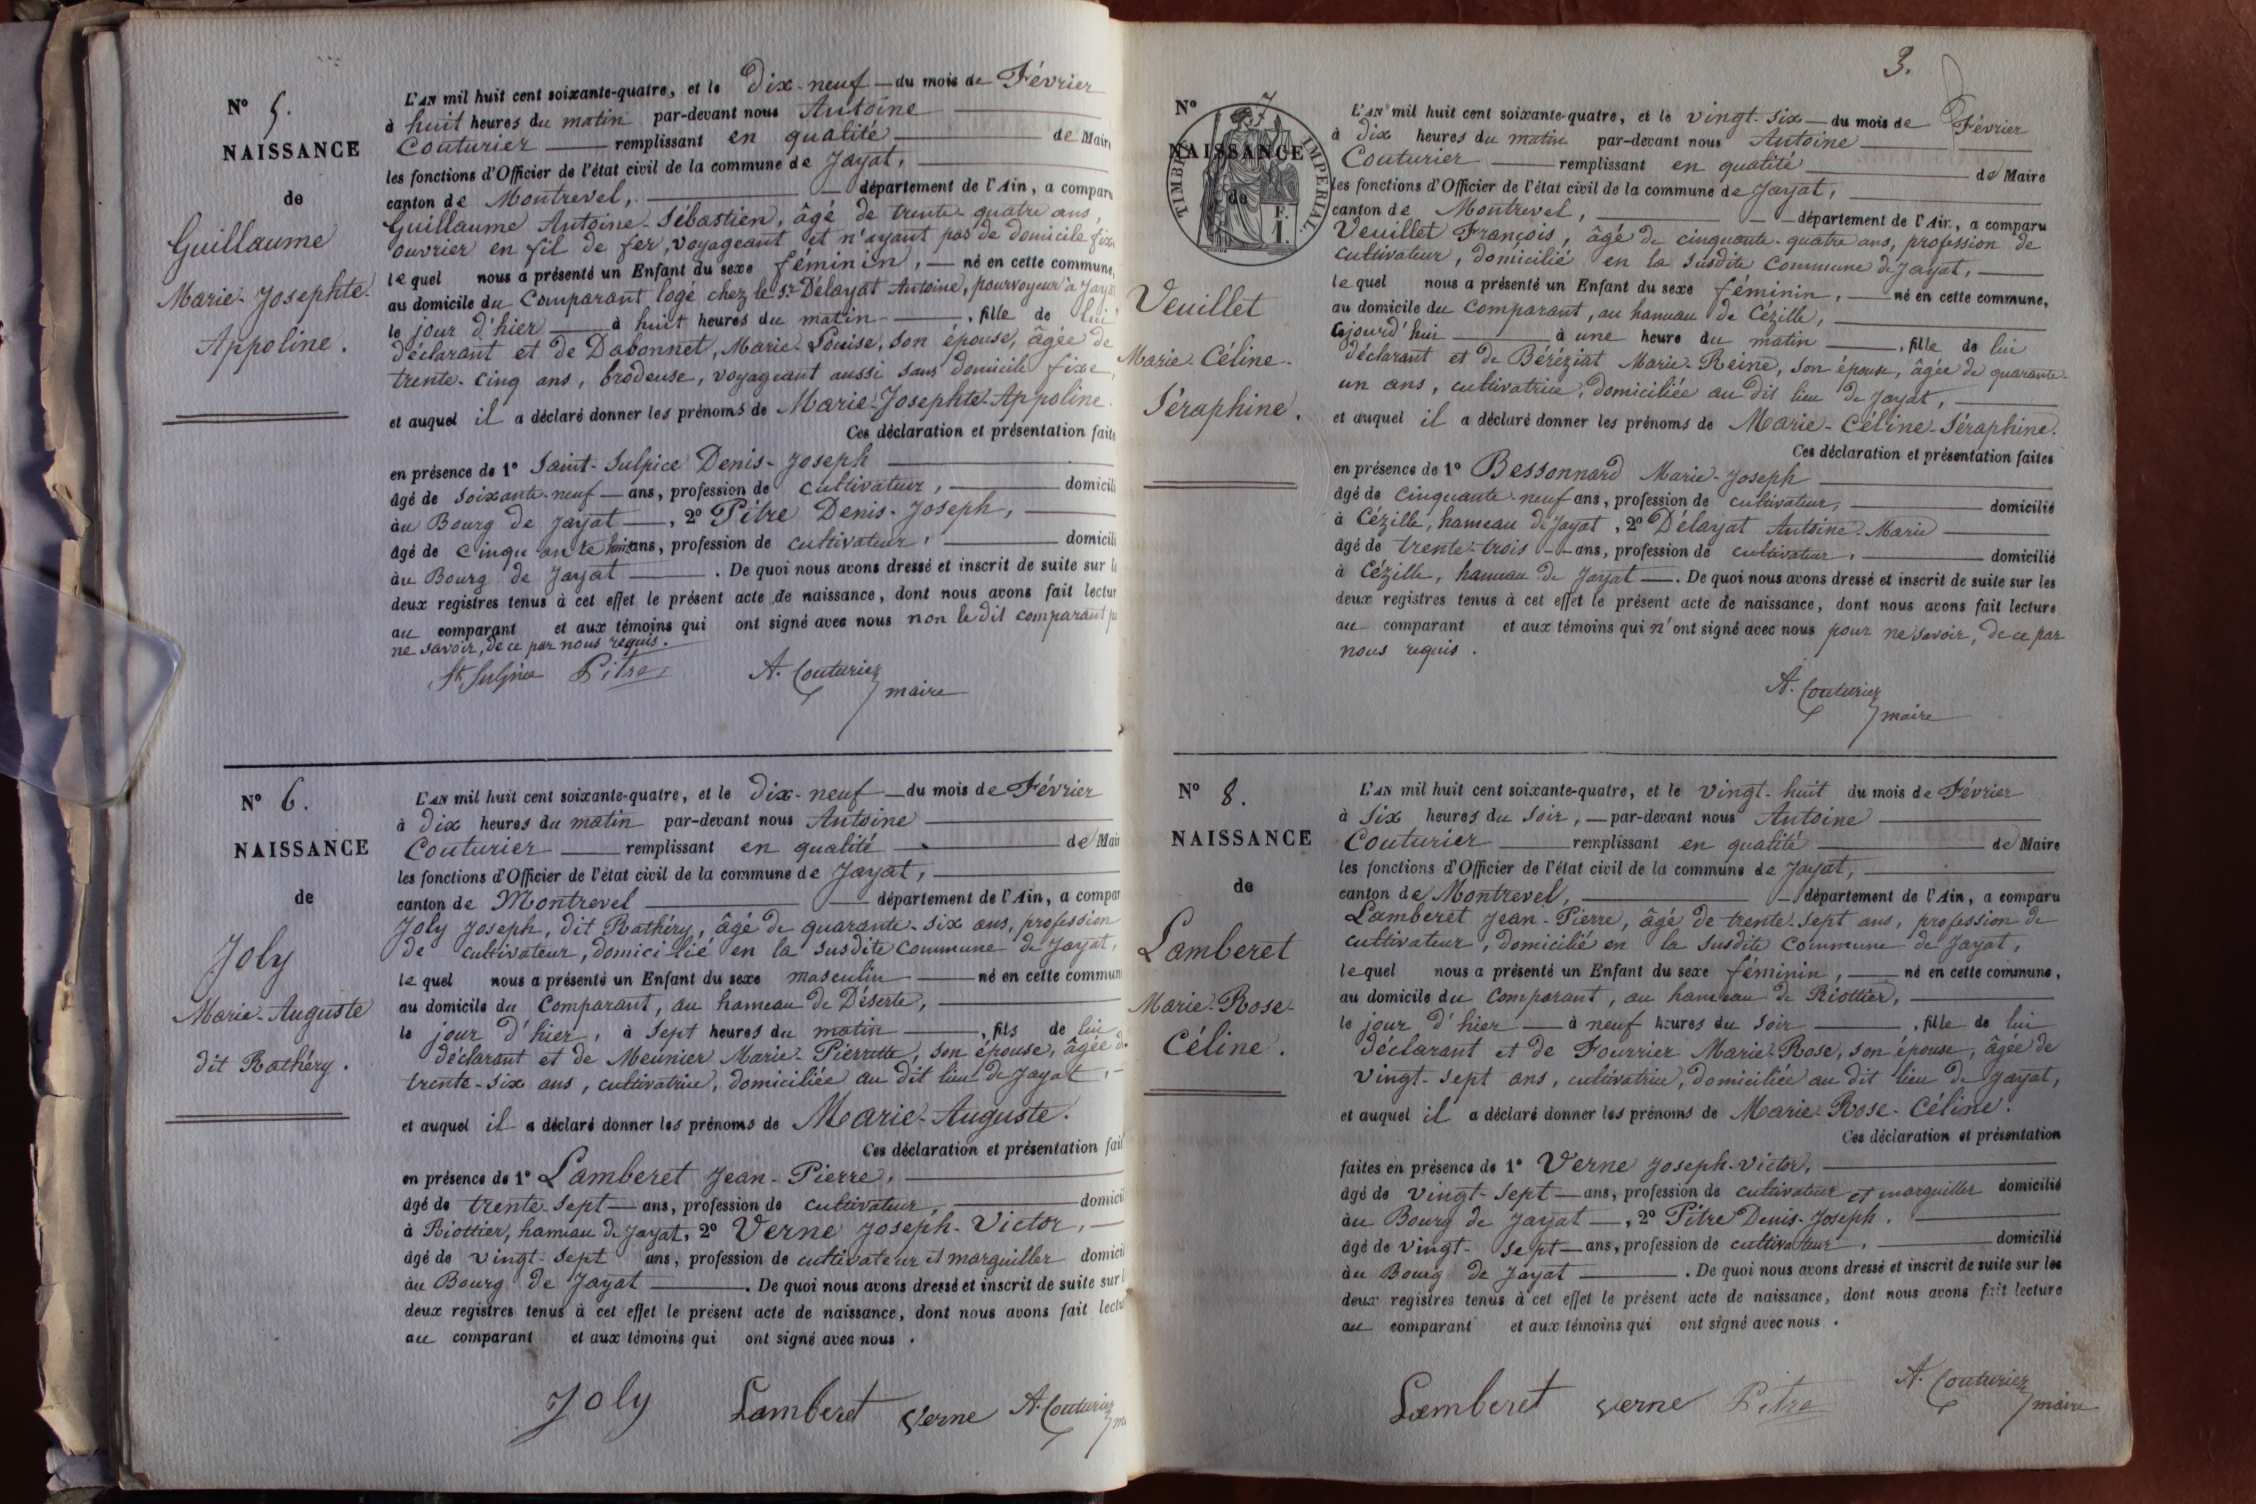 N° 5.
NAISSANCE
de
Guillaume
Marie-Josephte-
Appoline.
L'AN mil huit cent soixante-quatre, et le Dix-neuf — du mois de Février
à huit heures du matin par-devant nous Antoine
Couturier — remplissant en qualité — de Mair
les fonctions d'Officier de l'état civil de la commune de Jayat,
canton de Montrevel, — département de l'Ain, a comparu
Guillaume Antoine-Sébastien, âgé de trente-quatre ans,
ouvrier en fil de fer, voyageant et n'ayant pas de domicile fixe
lequel nous a présenté un Enfant du sexe féminin, — né en cette commune,
au domicile du Comparant logé chez le Sr. Délayat Antoine, pourvoyeur à Jayat
le jour d'hier — à huit heures du matin — , fille de lui
déclarant et de Dabonnet, Marie-Louise, son épouse, âgée de
trente-cinq ans, brodeuse, voyageant aussi sans domicile fixe,
et auquel il a déclaré donner les prénoms de Marie-Josephte-Appoline.
Ces déclaration et présentation faite
en présence de 1° Saint-Sulpice Denis-Joseph
âgé de soixante-neuf — ans, profession de cultivateur, — domicili
au Bourg de Jayat — , 2° Pitre Denis-Joseph,
âgé de cinquante huit ans, profession de cultivateur, — domicili
au Bourg de Jayat — . De quoi nous avons dressé et inscrit de suite sur l
deux registres tenus à cet effet le présent acte de naissance, dont nous avons fait lectur
au comparant et aux témoins qui ont signé avec nous non le dit comparant p
ne savoir, de ce par nous requis.
St Sulpice Pitre A. Couturier
maire
N° 6.
NAISSANCE
de
Joly
Marie-Auguste
dit Rathéry.
L'AN mil huit cent soixante-quatre, et le Dix-neuf — du mois de Février
à Dix heures du matin par-devant nous Antoine
Couturier — remplissant en qualité — de Mair
les fonctions d'Officier de l'état civil de la commune de Jayat,
canton de Montrevel — département de l'Ain, a compar
Joly Joseph, dit Rathéry, âgé de quarante-six ans, profession
de cultivateur, domicilié en la susdite commune de Jayat,
lequel nous a présenté un Enfant du sexe masculin — né en cette commun
au domicile du Comparant, au hameau de Déserte,
le jour d'hier, à sept heures du matin — , fils de lui
déclarant et de Meunier Marie-Pierrette, son épouse, âgée de
trente-six ans, cultivatrice, domiciliée au dit lieu de Jayat,
et auquel il a déclaré donner les prénoms de Marie-Auguste.
Ces déclaration et présentation fait
en présence de 1° Lamberet Jean-Pierre,
âgé de trente-sept — ans, profession de cultivateur, — domici
à Riottier, hameau de Jayat, 2° Verne Joseph-Victor,
âgé de vingt-sept ans, profession de cultivateur et marguiller domici
au Bourg de Jayat — . De quoi nous avons dressé et inscrit de suite sur l
deux registres tenus à cet effet le présent acte de naissance, dont nous avons fait lectu
au comparant et aux témoins qui ont signé avec nous.
Joly Lamberet Verne A. Couturier
3.
N° 7
NAISSANCE
de
TIMBRE IMPERIAL.
F.
I.
Veuillet
Marie-Céline-
Séraphine.
L'AN mil huit cent soixante-quatre, et le vingt-six — du mois de Février
à dix heures du matin par-devant nous Antoine
Couturier — remplissant en qualité — de Maire
les fonctions d'Officier de l'état civil de la commune de Jayat,
canton de Montrevel, — département de l'Ain, a comparu
Veuillet François, âgé de cinquante-quatre ans, profession de
cultivateur, domicilié en la susdite Commune de Jayat,
lequel nous a présenté un Enfant du sexe féminin, — né en cette commune,
au domicile du Comparant, au hameau de Cézille,
cejourd'hui — à une heure du matin — , fille de lui
déclarant et de Béréziat Marie-Reine, son épouse, âgée de quarante-
un ans, cultivatrice, domiciliée au dit lieu de Jayat,
et auquel il a déclaré donner les prénoms de Marie-Céline-Séraphine.
Ces déclaration et présentation faites
en présence de 1° Bessonnard Marie-Joseph
âgé de cinquante-neuf ans, profession de cultivateur, — domicilié
à Cézille, hameau de Jayat, 2° Délayat Antoine-Marie
âgé de trente-trois — ans, profession de cultivateur, — domicilié
à Cézille, hameau de Jayat — . De quoi nous avons dressé et inscrit de suite sur les
deux registres tenus à cet effet le présent acte de naissance, dont nous avons fait lecture
au comparant et aux témoins qui n'ont signé avec nous pour ne savoir, de ce par
nous requis.
A. Couturier
maire
N° 8.
NAISSANCE
de
Lamberet
Marie-Rose-
Céline.
L'AN mil huit cent soixante-quatre, et le vingt-huit du mois de Février
à six heures du soir, — par-devant nous Antoine
Couturier — remplissant en qualité — de Maire
les fonctions d'Officier de l'état civil de la commune de Jayat,
canton de Montrevel, — département de l'Ain, a comparu
Lamberet Jean-Pierre, âgé de trente-sept ans, profession de
cultivateur, domicilié en la susdite commune de Jayat,
lequel nous a présenté un Enfant du sexe féminin, — né en cette commune,
au domicile du comparant, au hameau de Riottier,
le jour d'hier — à neuf heures du soir — , fille de lui
déclarant et de Fourrier Marie-Rose, son épouse, âgée de
vingt-sept ans, cultivatrice, domiciliée au dit lieu de Jayat,
et auquel il a déclaré donner les prénoms de Marie-Rose-Céline.
Ces déclaration et présentation
faites en présence de 1° Verne Joseph-Victor,
âgé de vingt-sept — ans, profession de cultivateur et marguiller domicilié
au Bourg de Jayat — , 2° Pitre Denis-Joseph.
âgé de vingt-sept — ans, profession de cultivateur, — domicilié
au Bourg de Jayat — . De quoi nous avons dressé et inscrit de suite sur les
deux registres tenus à cet effet le présent acte de naissance, dont nous avons fait lecture
au comparant et aux témoins qui ont signé avec nous.
Lamberet Verne Pitre A. Couturier
maire